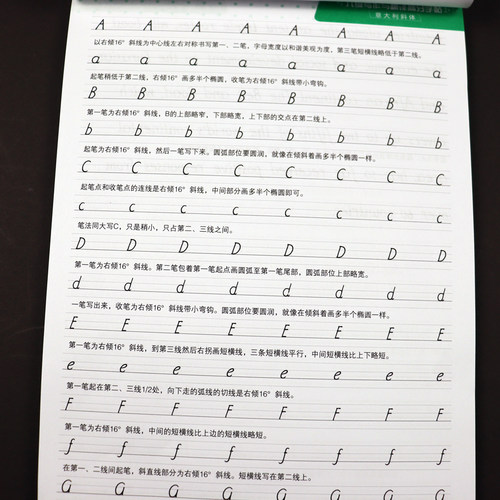 意大利斜体
A A A A A A A A
以右倾16°斜线为中心线左右对称书写第一、二笔，字母宽度以和谐美观为度，第三笔短横线略低于第二线。
a a a a a a a a
起笔稍低于第二线，右倾16°画多半个椭圆，收笔为右倾16°斜线带小弯钩。
B B B B B B B B
第一笔为右倾16°斜线，B的上部略窄，下部略宽，上下部的交点在第二线上。
b b b b b b b b
起笔为右倾16°斜线，然后一笔写下来。圆弧部位要圆润，就像在倾斜着画多半个椭圆一样。
C C C C C C C C
起笔点和收笔点的连线是右倾16°斜线，中间部分画多半个椭圆即可。
c c c c c c c c
笔法同大写C，只是稍小，只占第二、三线之间。
D D D D D D D D
第一笔为右倾16°斜线。第二笔包着第一笔起点画圆弧至第一笔尾部，圆弧部位上部略宽。
d d d d d d d d
一笔写出来，收笔为右倾16°斜线带小弯钩。圆弧部位要圆润，就像在倾斜着画多半个椭圆一样。
E E E E E E E E
第一笔为右倾16°斜线，到第三线然后右拐画短横线，三条短横线平行，中间短横线比上下略短。
e e e e e e e e
第一笔起在第二、三线1/2处，向下走的弧线的切线是右倾16°斜线。
F F F F F F F F
第一笔为右倾16°斜线，中间的短横线比上边的短横线略短。
f f f f f f f f
在第一、二线间起笔，斜直线部分为右倾16°斜线。短横线写在第二线上。
G G G G G G G G